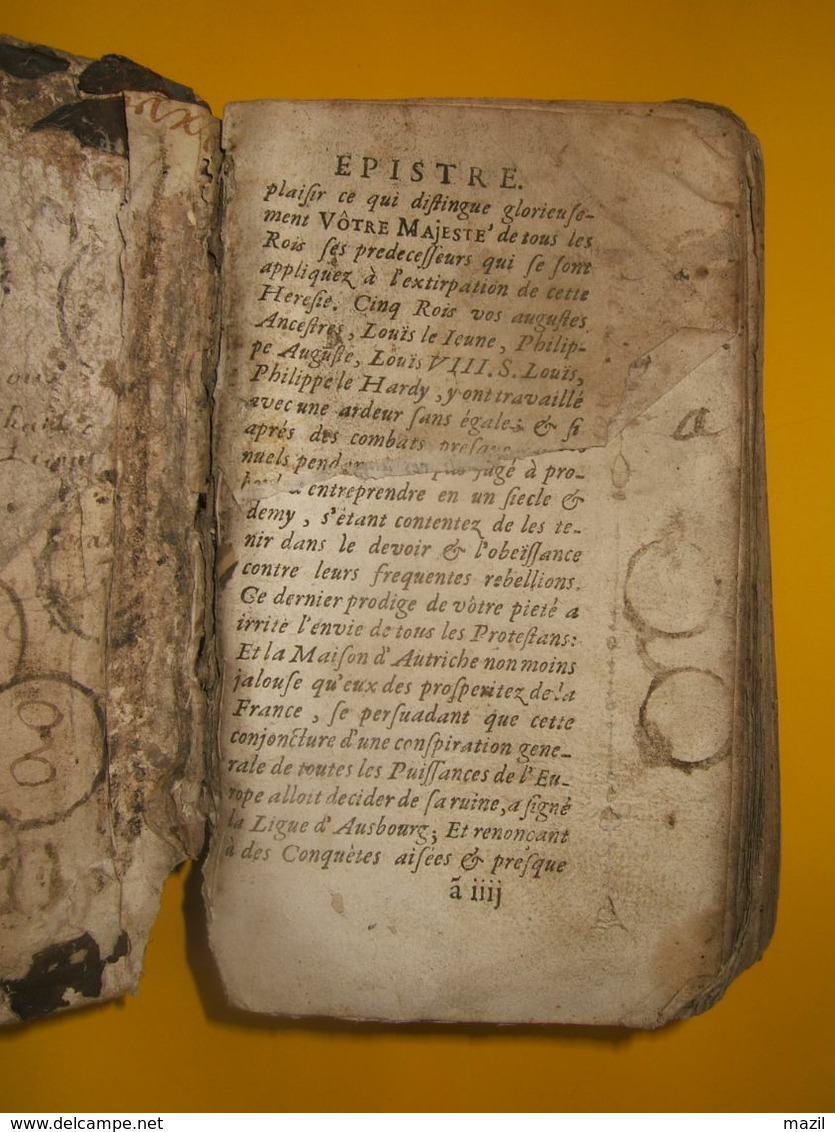 EPISTRE.
plaiſir ce qui diſtingue glorieuſe-
ment VÔTRE MAJESTE' de tous les
Rois ſes predeceſſeurs qui ſe ſont
appliquez à l'extirpation de cette
Hereſie. Cinq Rois vos auguſtes
Anceſtres, Louïs le Ieune, Philip-
pe Auguſte, Louïs VIII. S. Louïs,
Philippe le Hardy, y ont travaillé
avec une ardeur ſans égale; & ſi
aprés des combats
nuels jugé à pro-
entreprendre en un ſiecle &
demy, s'étant contentez de les te-
nir dans le devoir & l'obeïſſance
contre leurs frequentes rebellions.
Ce dernier prodige de vôtre pieté a
irrité l'envie de tous les Proteſtans:
Et la Maiſon d'Autriche non moins
jalouſe qu'eux des proſperitez de la
France, ſe perſuadant que cette
conjoncture d'une conſpiration gene-
rale de toutes les Puiſſances de l'Eu-
rope alloit decider de ſa ruine, a ſigné
la Ligue d'Ausbourg; Et renonçant
à des Conquètes aiſées & preſque
ã iiij
a
delcampe.net
mazil